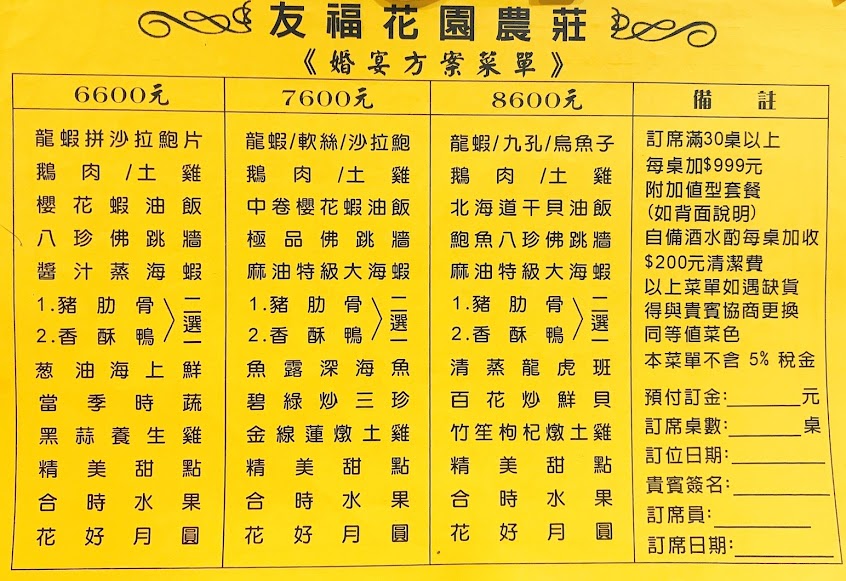 友福花園農莊
《婚宴方案菜單》
6600元
龍蝦拼沙拉鮑片
鵝肉/土雞
櫻花蝦油飯
八珍佛跳牆
醬汁蒸海蝦
1.豬肋骨
2.香酥鴨
二選一
葱油海上鮮
當季時蔬
黑蒜養生雞
精美甜點
合時水果
花好月圓
7600元
龍蝦/軟絲/沙拉鮑
鵝肉/土雞
中卷櫻花蝦油飯
極品佛跳牆
麻油特級大海蝦
1.豬肋骨
2.香酥鴨
二選一
魚露深海魚
碧綠炒三珍
金線蓮燉土雞
精美甜點
合時水果
花好月圓
8600元
龍蝦/九孔/烏魚子
鵝肉/土雞
北海道干貝油飯
鮑魚八珍佛跳牆
麻油特級大海蝦
1.豬肋骨
2.香酥鴨
二選一
清蒸龍虎班
百花炒鮮貝
竹笙枸杞燉土雞
精美甜點
合時水果
花好月圓
備註
訂席滿30桌以上
每桌加$999元
附加值型套餐
(如背面說明)
自備酒水酌每桌加收
$200元清潔費
以上菜單如遇缺貨
得與貴賓協商更換
同等值菜色
本菜單不含 5% 稅金
預付訂金:______元
訂席桌數:______桌
訂位日期:________
貴賓簽名:________
訂席員:________
訂席日期:________